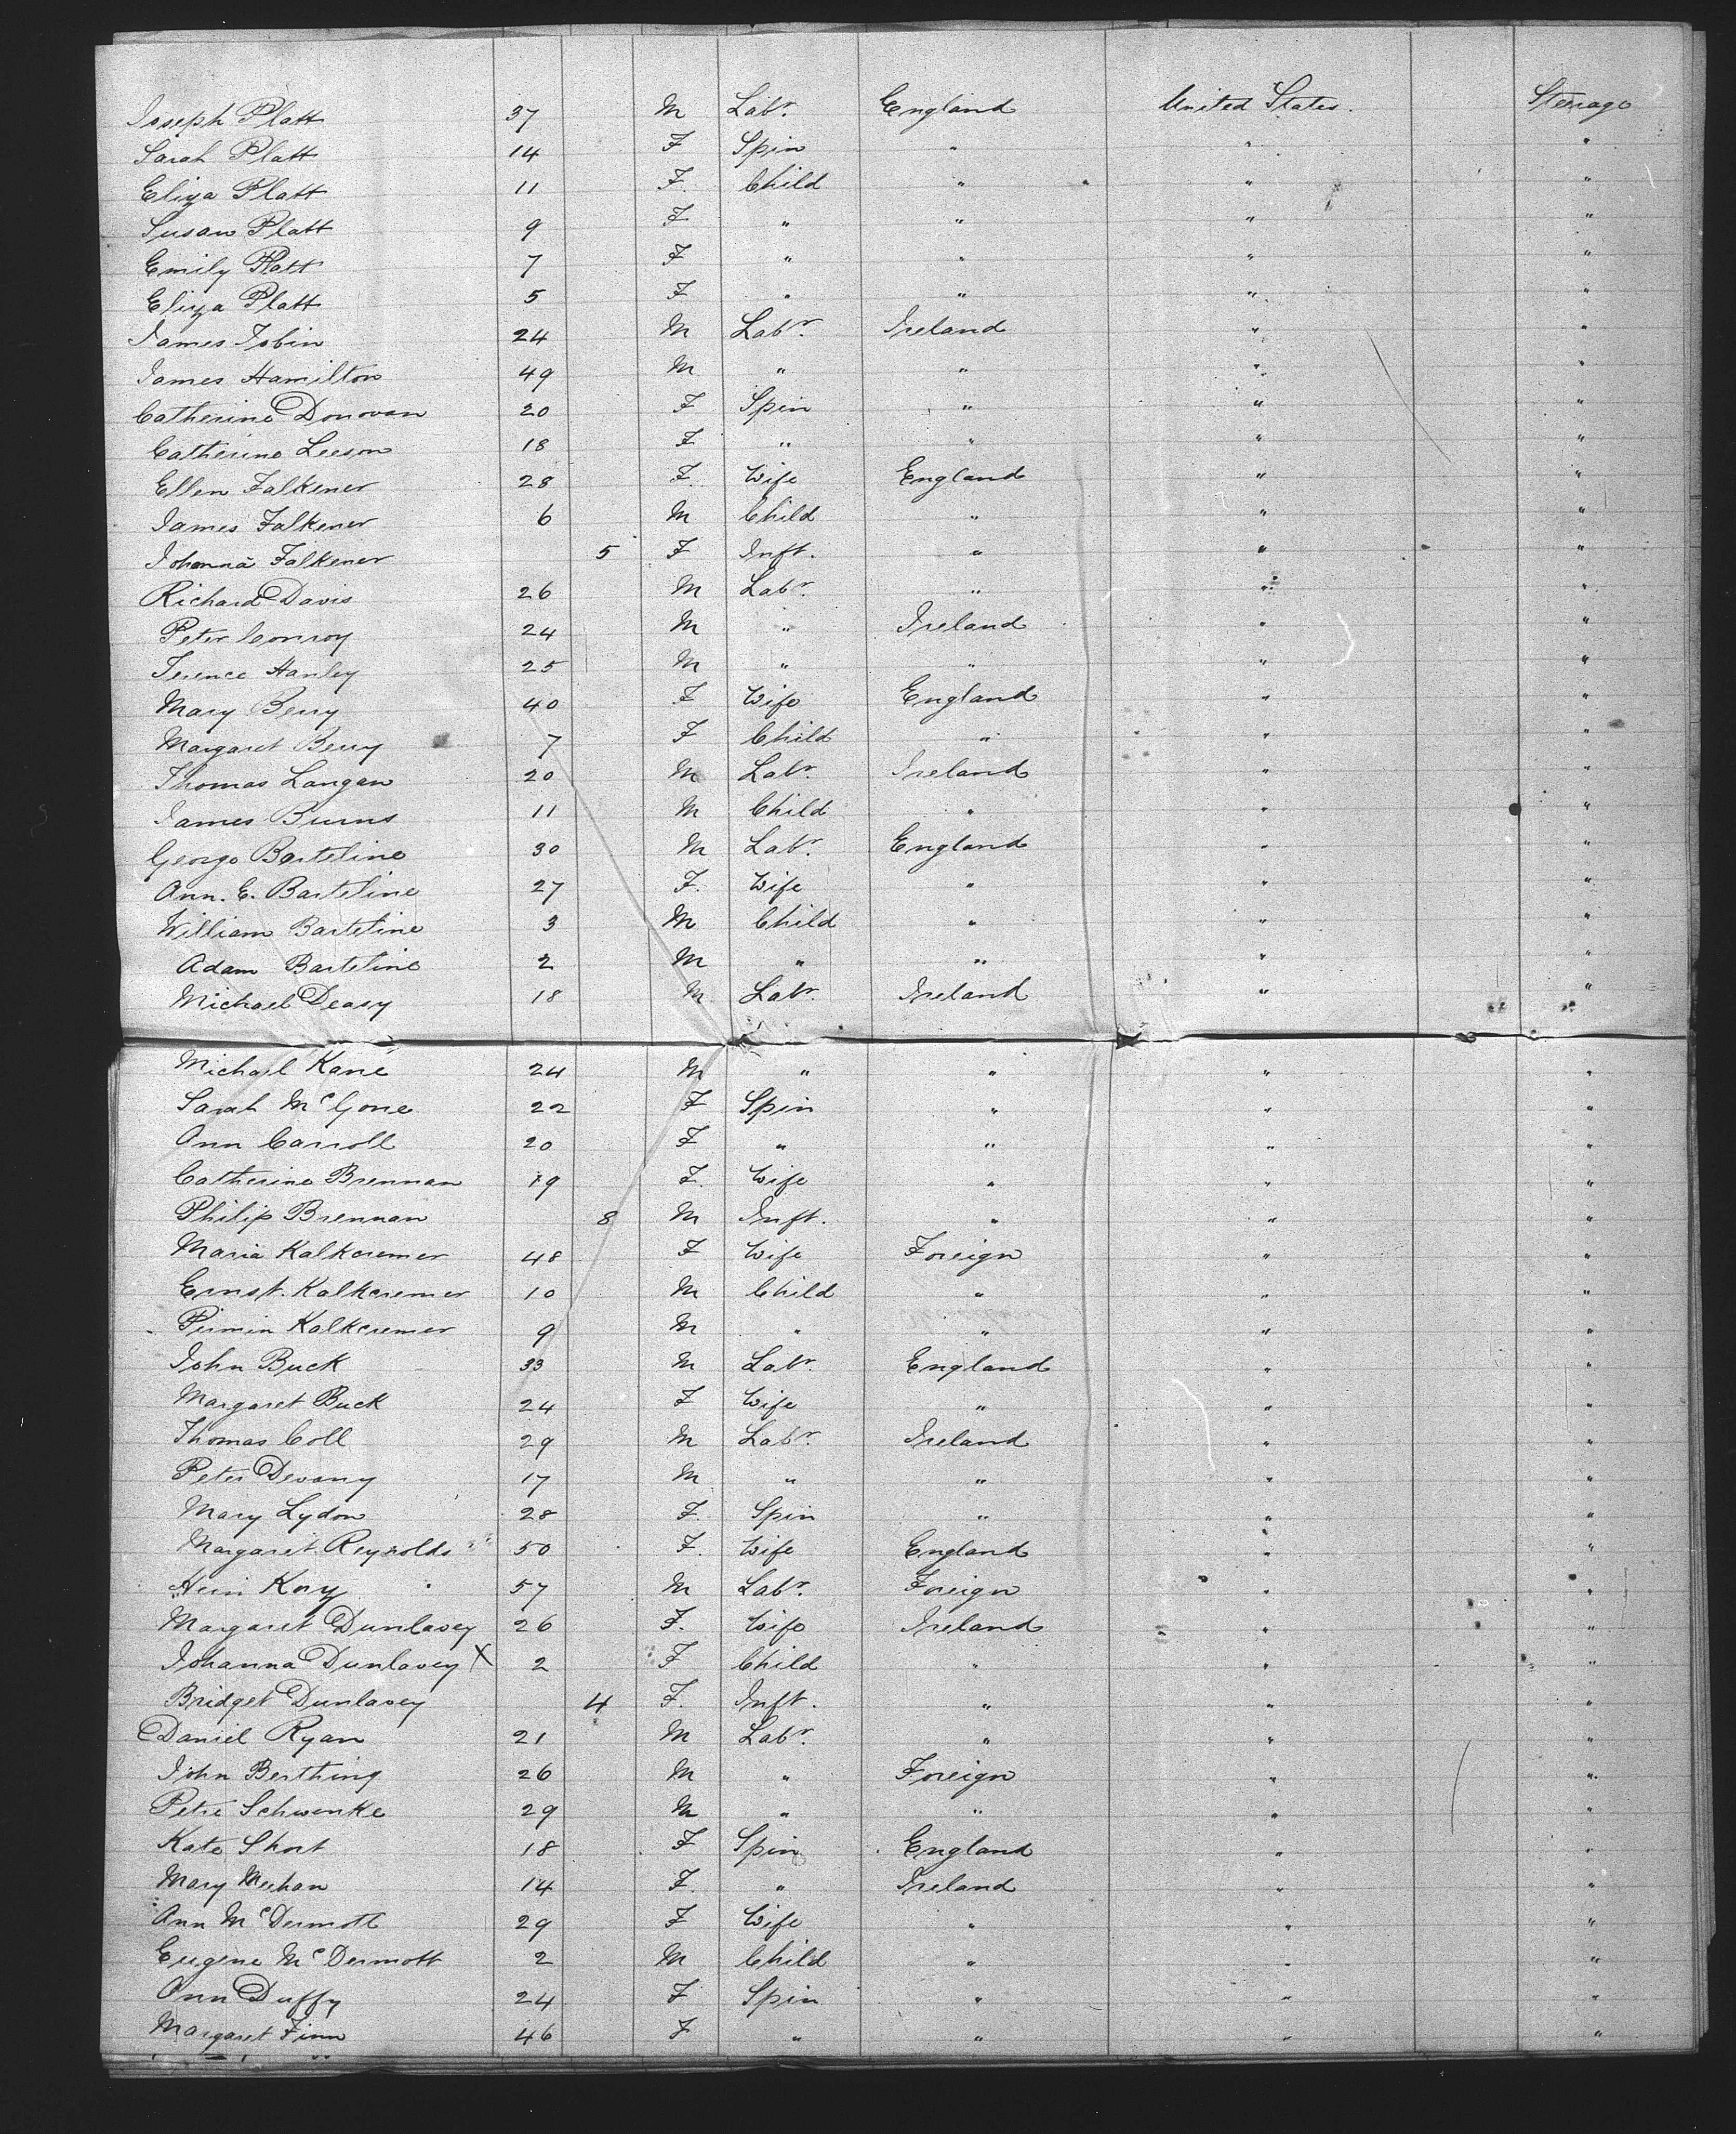 Joseph Platt 37 M Labr. England United States. Steerage
Sarah Platt 14 F Spin " " "
Eliza Platt 11 F. Child " " "
Susan Platt 9 F " " " "
Emily Platt 7 F " " " "
Eliza Platt 5 F " " " "
James Tobin 24 M Labr. Ireland " "
James Hamilton 49 M " " " "
Catherine Donovan 20 F Spin " " "
Catherine Leeson 18 F " " " "
Ellen Falkener 28 F. Wife England " "
James Falkener 6 M Child " " "
Johanna Falkener 5 F Inft. " " "
Richard Davis 26 M Labr. " " "
Peter Conroy 24 M " Ireland " "
Terence Hanley 25 M " " " "
Mary Berry 40 F Wife England " "
Margaret Berry 7 F Child " " "
Thomas Langan 20 M Labr. Ireland " "
James Burns 11 M Child " " "
George Barteline 30 M Labr. England " "
Ann. E. Barteline 27 F. Wife " " "
William Barteline 3 M Child " " "
Adam Barteline 2 M " " " "
Michael Deasy 18 M Labr. Ireland " "
Michael Kane 24 M " " " "
Sarah McGone 22 F Spin " " "
Ann Carroll 20 F " " " "
Catherine Brennan 19 F. Wife " " "
Philip Brennan 8 M Inft. " " "
Maria Kalkcremer 48 F Wife Foreign " "
Ernst. Kalkcremer 10 M Child " " "
Pirmin Kalkcremer 9 M " " " "
John Buck 33 M Labr. England " "
Margaret Buck 24 F Wife " " "
Thomas Coll 29 M Labr. Ireland " "
Peter Devany 17 M " " " "
Mary Lydon 28 F. Spin " " "
Margaret Reynolds 50 F. Wife England " "
Kory 57 M Labr. Foreign " "
Margaret Dunlavey 26 F. Wife Ireland " "
Johanna Dunlavey X 2 F Child " " "
Bridget Dunlavey 4 F. Inft. " " "
Daniel Ryan 21 M Labr. " " "
John Berthing 26 M " Foreign " "
Petre Schwenke 29 M " " " "
Kate Short 18 F Spin England " "
Mary Meehan 14 F. " Ireland " "
Ann McDermott 29 F Wife " " "
Eugene McDermott 2 M Child " " "
Ann Duffy 24 F Spin " " "
Margaret Finn 46 F " " " "